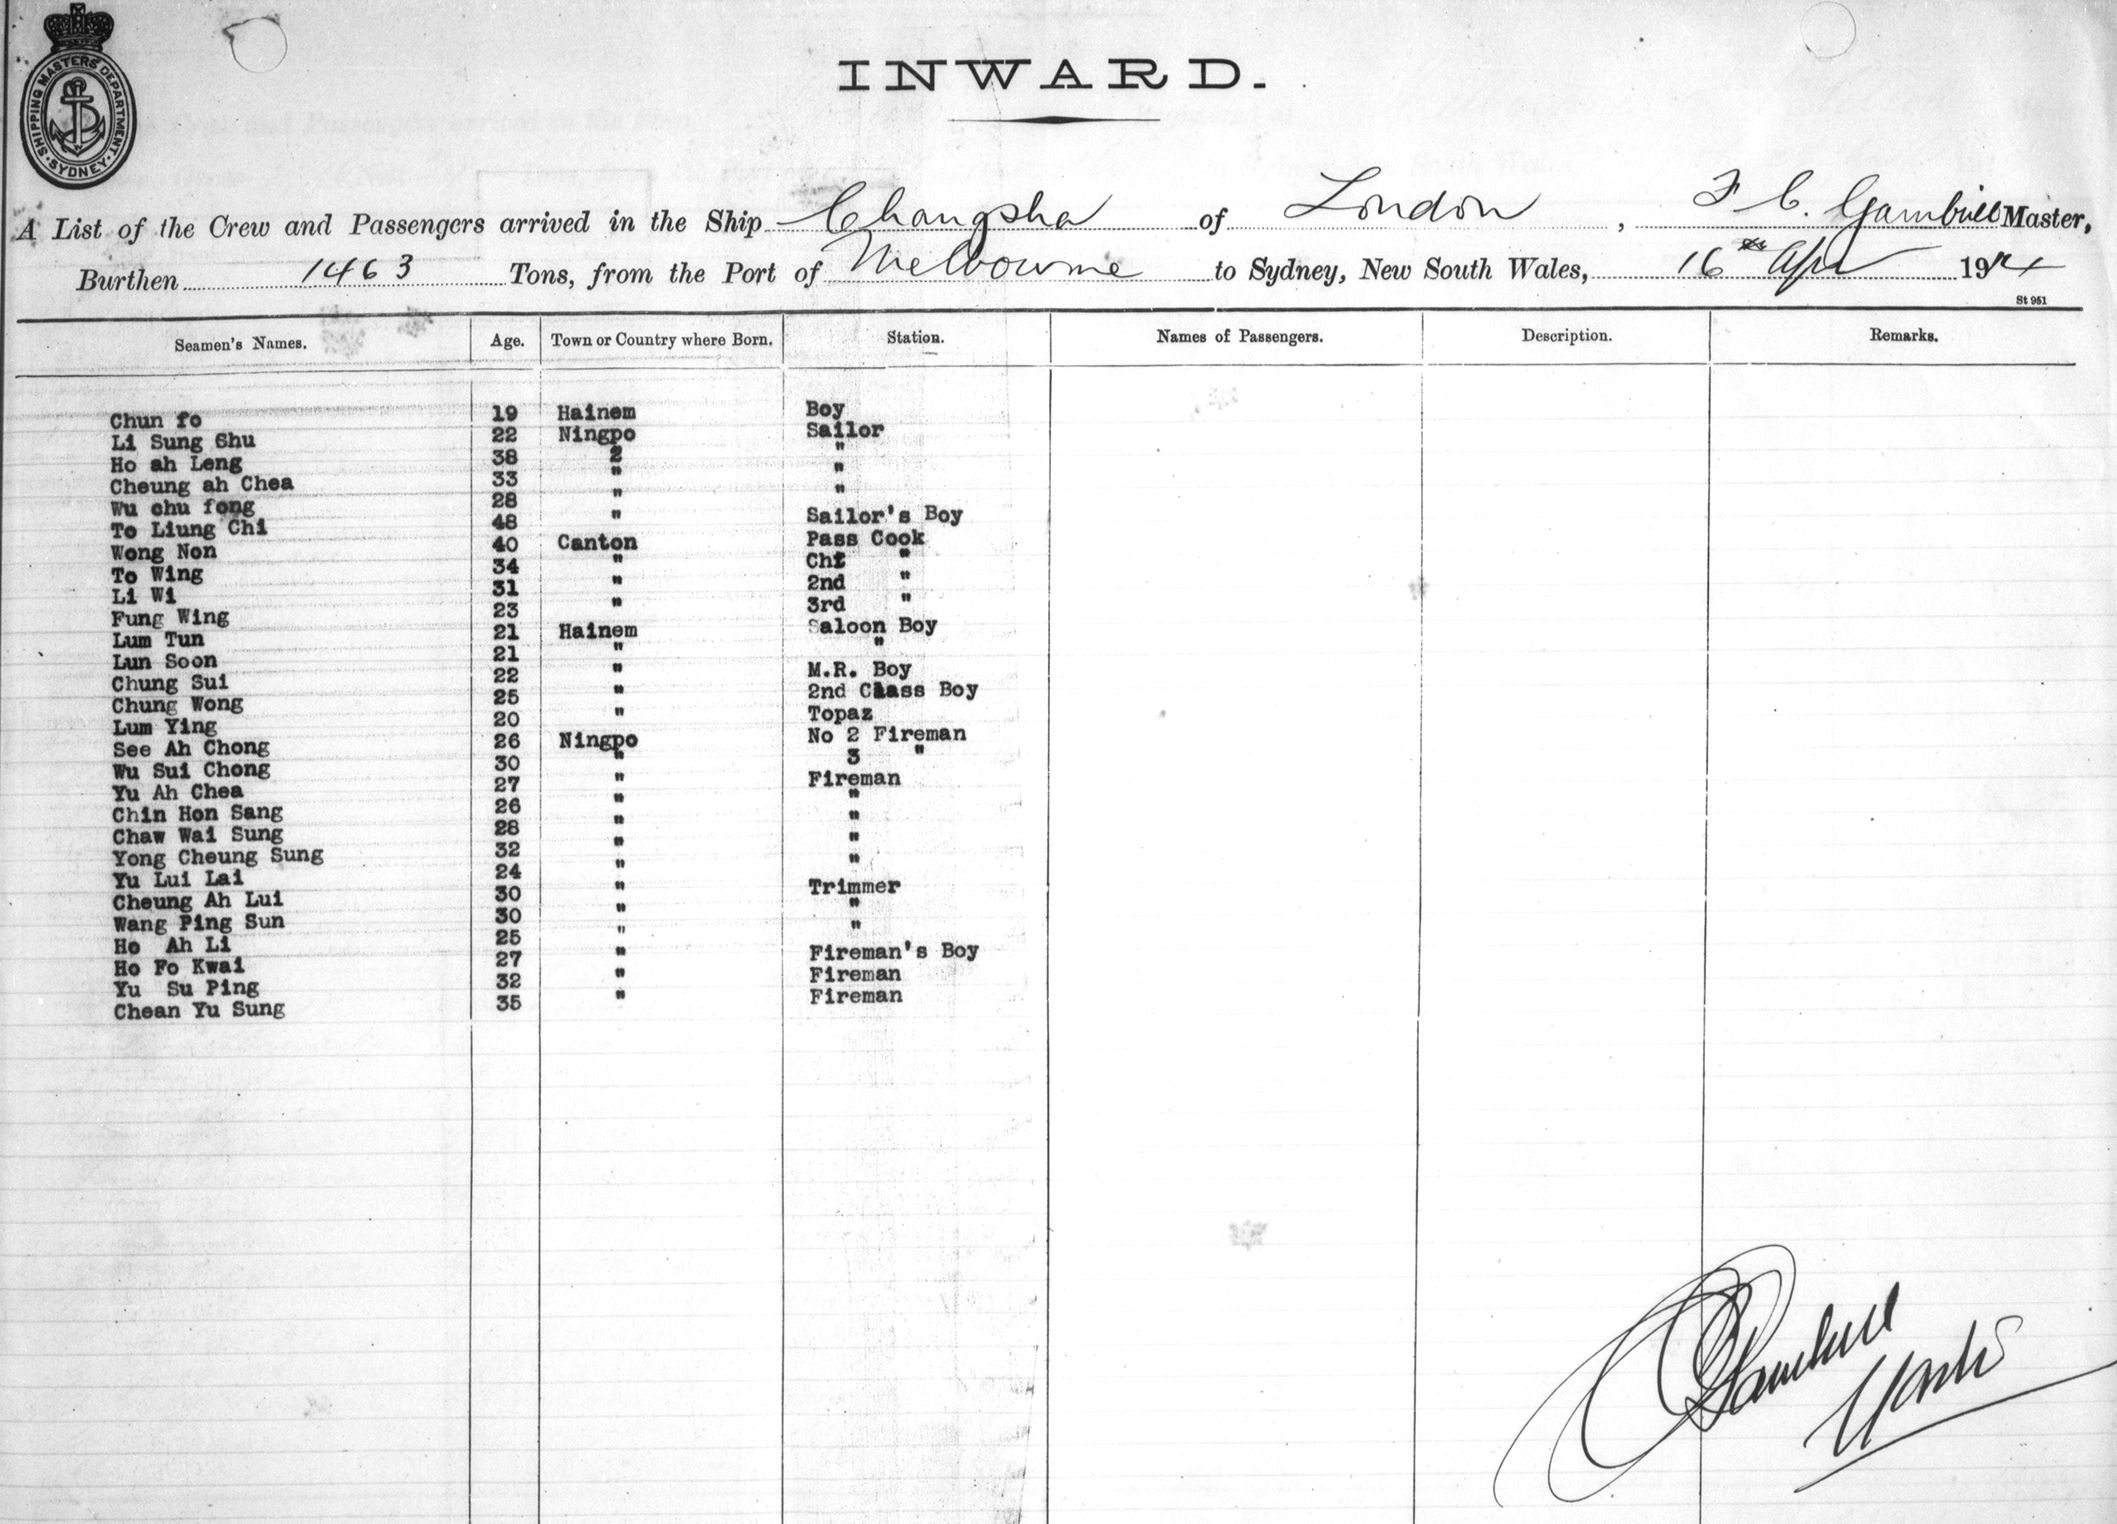 SHIPPING MASTERS DEPARTMENT. SYDNEY
INWARD.
A List of the Crew and Passengers arrived in the Ship Changsha of London, F C. Gambrill Master,
Burthen 1463 Tons, from the Port of Melbourne to Sydney, New South Wales, 16th Apr 19
St 951
Seamen's Names. Age. Town or Country where Born. Station. Names of Passengers. Description. Remarks.
Chun fo 19 Hainem Boy
Li Sung Shu 22 Ningpo Sailor
Ho ah Leng 38 2 "
Cheung ah Chea 33 " "
Wu chu fong 28 " "
To Liung Chi 48 " Sailor's Boy
Wong Non 40 Canton Pass Cook
To Wing 34 " Chf "
Li Wi 31 " 2nd "
Fung Wing 23 " 3rd "
Lum Tun 21 Hainem Saloon Boy
Lun Soon 21 " "
Chung Sui 22 " M.R. Boy
Chung Wong 25 " 2nd Class Boy
Lum Ying 20 " Topaz
See Ah Chong 26 Ningpo No 2 Fireman
Wu Sui Chong 30 " 3 "
Yu Ah Chea 27 " Fireman
Chin Hon Sang 26 " "
Chaw Wai Sung 28 " "
Yong Cheung Sung 32 " "
Yu Lui Lai 24 " "
Cheung Ah Lui 30 " Trimmer
Wang Ping Sun 30 " "
Ho Ah Li 25 " "
Ho Fo Kwai 27 " Fireman's Boy
Yu Su Ping 32 " Fireman
Chean Yu Sung 35 " Fireman